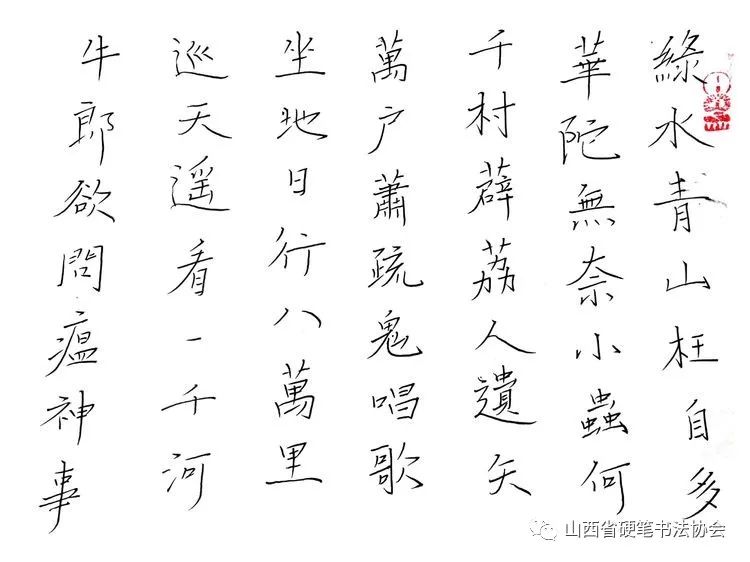 綠水青山枉自多
華陀無奈小蟲何
千村薜荔人遺矢
萬户蕭疏鬼唱歌
坐地日行八萬里
巡天遥看一千河
牛郎欲問瘟神事
山西省硬笔书法协会